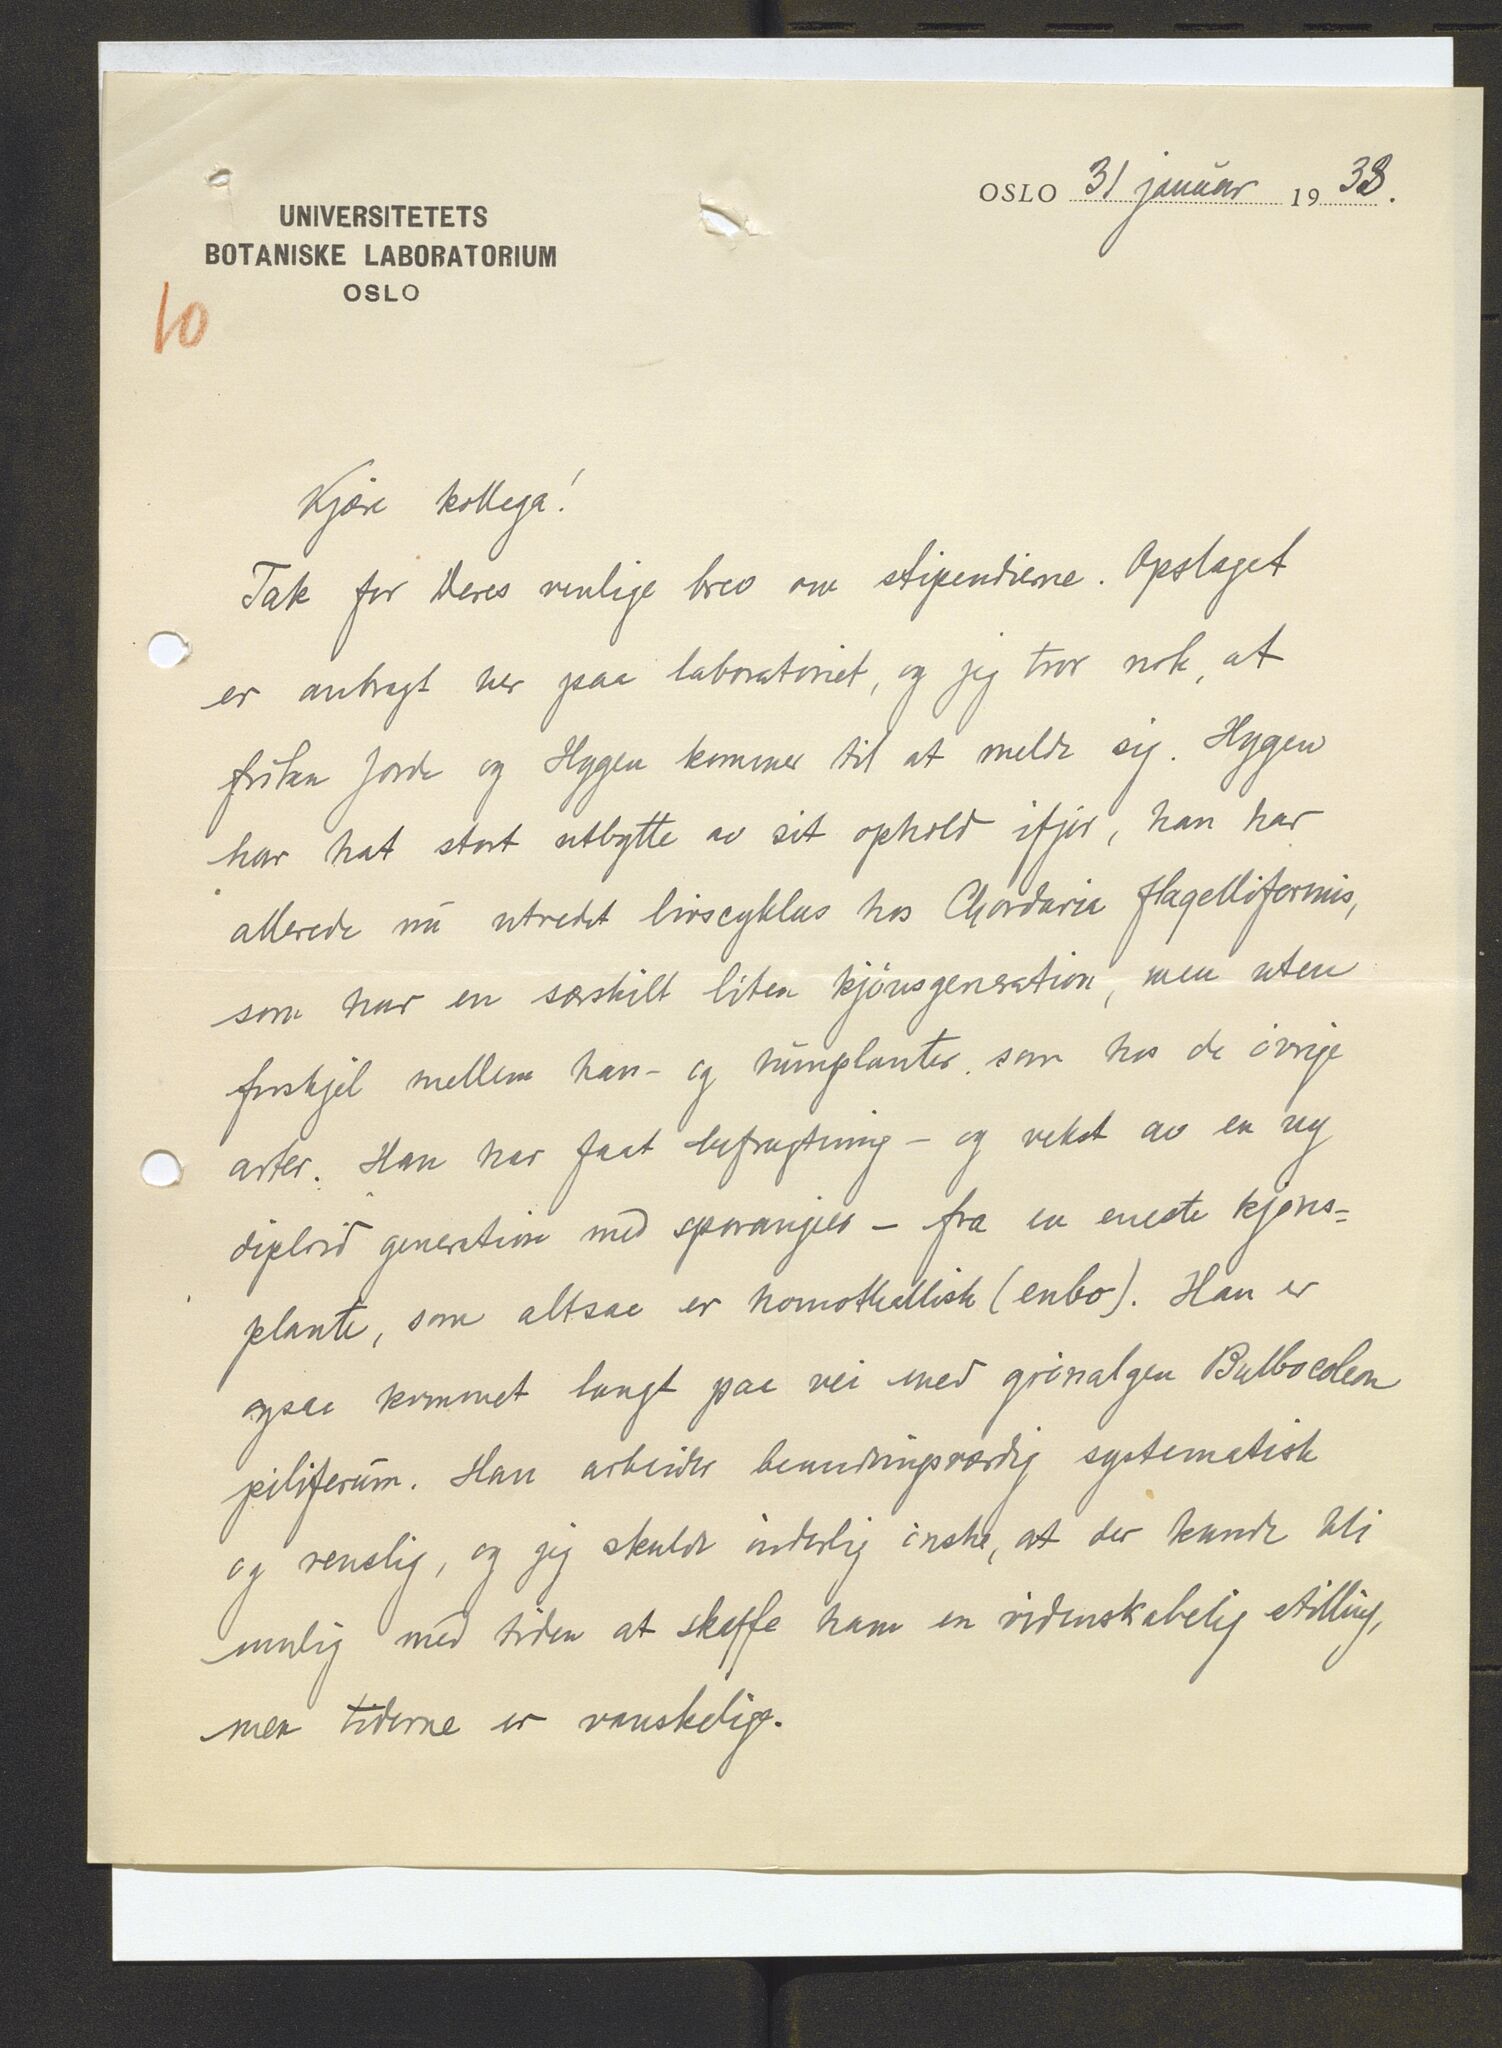 OSLO 31 januar 1933.
UNIVERSITETETS
BOTANISKE LABORATORIUM
OSLO
10
Kjære kollega!
Tak for Deres venlige brev om stipendierne. Opslaget
er anbragt her paa laboratoriet, og jeg tror nok, at
frøken Jorde og Hygen kommer til at melde sig. Hygen
har hat stort utbytte av sit ophold ifjor, han har
allerede nu utredet livscyklus hos Chordaria flagelliformis,
som har en særskilt liten kjønsgeneration, men uten
forskjel mellem han- og hunplanter som hos de øvrige
arter. Han har faat befrugtning - og vekst av en ny
diploid generation med sporangier - fra en eneste kjøns-
plante, som altsaa er homothallisk (enbo). Han er
ogsaa kommet langt paa vei med grønalgen Bulbocoleon
piliferum. Han arbeider beundringsværdig systematisk
og renslig, og jeg skulde inderlig ønske, at der kunde bli
mulig med tiden at skaffe ham en videnskabelig stilling,
men tiderne er vanskelige.